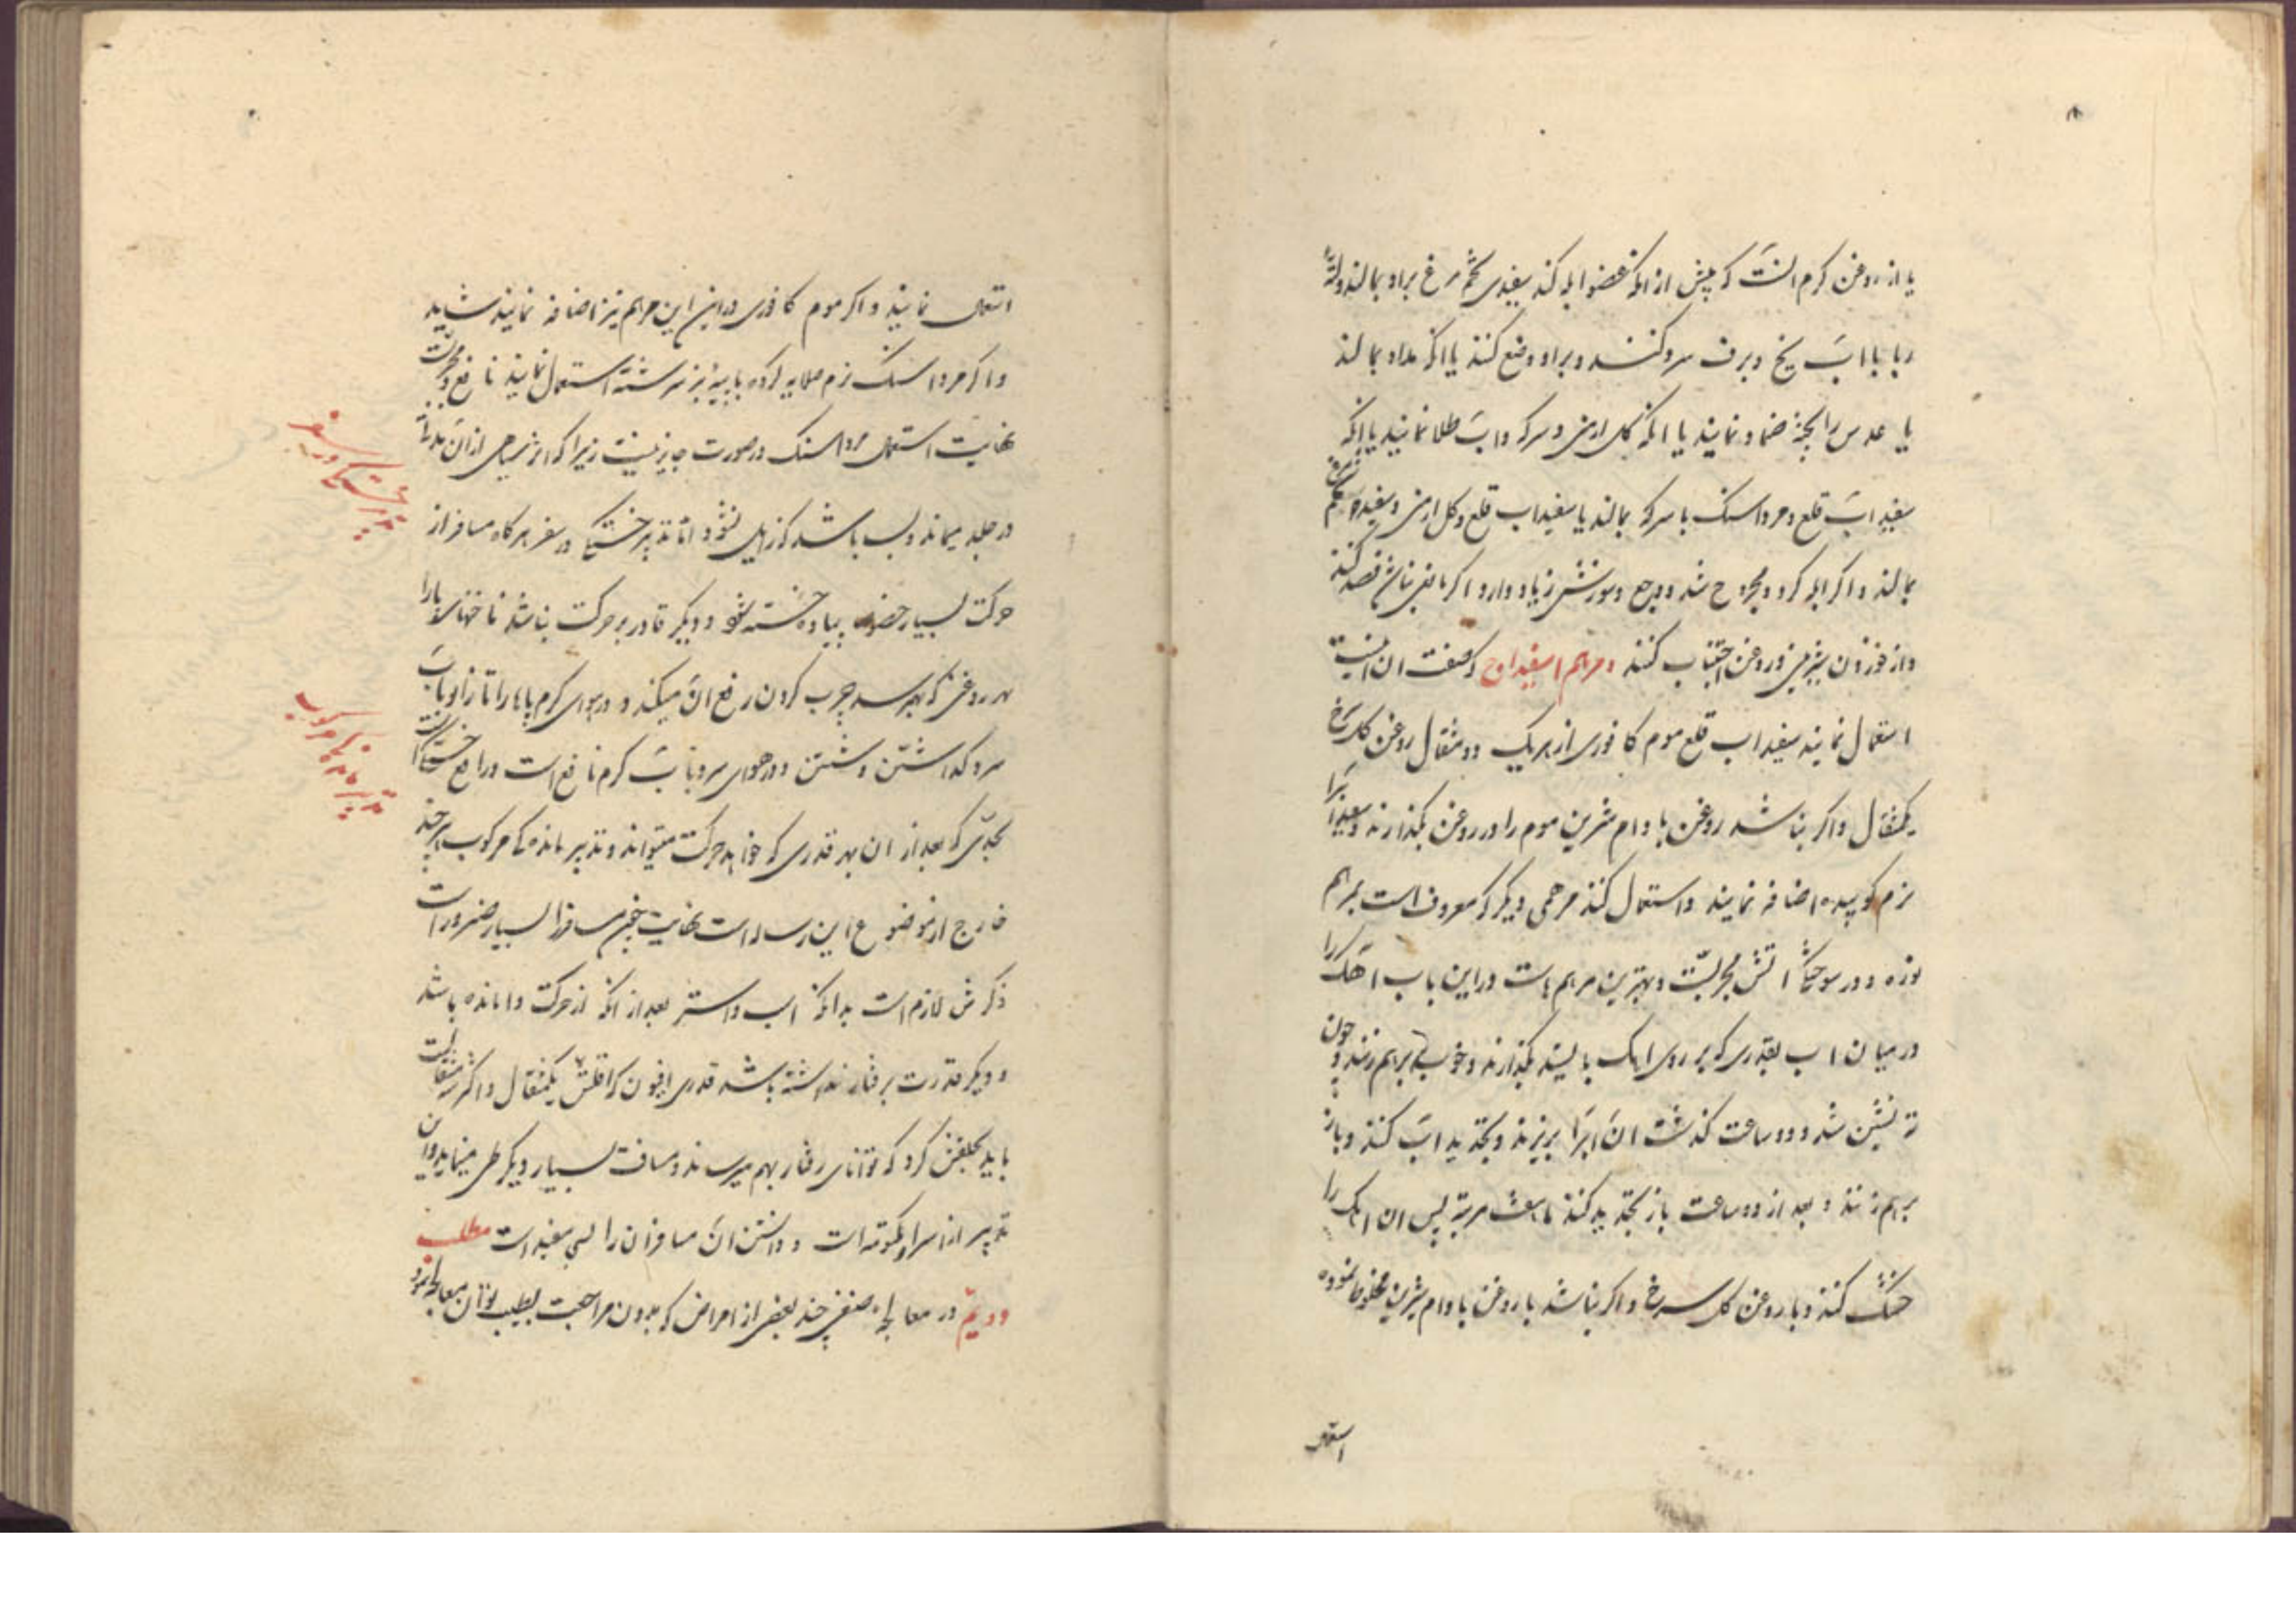 یا از روغن کرم انست که پیش از انکه عضو ابله کند سفیدی تخم مرغ براو بمالند ولته
ربا با اب یخ و برف سرد کنند و براو وضع کنند یا انکه مداد بمالند
یا عدس را پخته ضماد نمایند یا انکه کل ارمنی و سرکه و اب طلا نمایند یا انکه
سفیداب قلع و مرداسنک با سرکه بمالند یا سفیداب قلع و کل ارمنی و سفیده تخم مرغ
بمالند و اکر ابله کرد و مجروح شد و وجع و سوزش زیاد دارد اکر مانعی نباشد فصد کنند
و از خوردن شیرینی و روغن اجتناب کنند و مرهم اسفیداج که صفت ان اینست
استعمال نمایند سفیداب قلع موم کافوری از هریک دو مثقال روغن کل سرخ
یکمثقال و اکر نباشد روغن بادام شیرین موم را در روغن بکدازند و سفیداب را
نرم کوبیده اضافه نمایند و استعمال کنند مرهمی دیکر که معروف است بمرهم
نوره و در سوختکی اتش مجربست و بهترین مرهم هاست در این باب اهک را
در میان اب بقدری که بر روی اهک بایستد بکذارند و خوب برهم زنند و چون
ته نشین شد و دو ساعت کذشت ان اب را بریزند و بتجدید اب کنند و باز
برهم زنند و بعد از دو ساعت باز تجدید کنند تا هفت مرتبه پس ان اهک را
خشک کنند و با روغن کل سرخ و اکر نباشد با روغن بادام شیرین مخلوط نموده
استعمال
استعمال نمایند و اکر موم کافوری در این مرهم نیز اضافه نمایند شاید
و اکر مرداسنک نرم صلایه کرده با پیه بز سرشته استعمال نمایند نافع و مجربست
نهایت استعمال مرداسنک در صورت جایز نیست زیرا که اثر سیاهی از ان مدتها
در جلد میماند و بسا باشد که زایل نشود اما تدبیر خستکی در سفر هرکاه مسافر از
حرکت بسیار خصوص پیاده خسته شود و دیکر قادر بر حرکت نباشد ناخنهای پا را
بهر روغنی که بهم رسد چرب کردن رفع ان میکند و در هوای کرم پاها را تا زانو باب
سرد کذاشتن و شستن و در هوای سرد باب کرم نافع است و رافع خستکی است
بحدی که بعد از ان بهر قدری که خواهد حرکت میتواند و تدبیر ماندکی مرکوب هر چند
خارج از موضوع این رساله است نهایت چون مسافر را بسیار ضرور است
ذکرش لازم است بدانکه اسب و استر بعد از انکه از حرکت وامانده باشد
و دیکر قدرت برفتار نداشته باشد قدری افیون که اقلش یکمثقال و اکثر سه مثقالست
باید بحلقش کرد که توانای رفتار بهم میرساند و مسافت بسیار دیکر طی مینماید و این
تدبیر از اسرار مکتومه است و دانستن ان مسافران را بسی مفید است مطلب
دویم در معالجه صنفی چند بعضی از امراض که بدون مراجعت بطبیب توان معالجه نمود
تدبیر خستکی در سفر
تدبیر ماندکی مرکوب